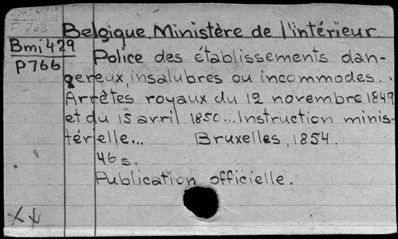 Belgique Ministère de l'intérieur.
Bmi 429
P766
Police des établissements dan-
gereux, insalubres ou incommodes...
Arrêtés royaux du 12 novembre 1849
et du 15 avril 1850... Instruction minis-
térielle... Bruxelles, 1854.
46 s.
Publication officielle.